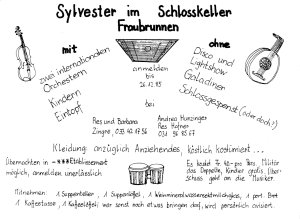 Sylvester im Schlosskeller
Fraubrunnen
mit
zwei internationalen
Orchestern
Kindern
Eintopf
anmelden
bis
26.12.85
bei
ohne
Disco und
Lightshow
Galadiner
Schlossgespenst (oder doch?)
Res und Barbara
Zingre, 033
Andrea Hunzinger
Res Hofner
031 96 85 67
Kleidung: anzüglich Anziehendes, köstlich kostümiert ...
Übernachten in -***Etablissement
möglich, anmelden unerlässlich
Es kostet Fr. 40.- pro Pers. Militär
das Doppelte, Kinder gratis, Über-
schuss geht an die Musiker.
Mitnehmen: 1 Suppenteller, 1 Suppenlöffel, 1 port. Brot
1 Kaffeetasse, 1 Kaffeelöffel, wer sonst noch etwas bringen darf, wird persönlich avisiert.